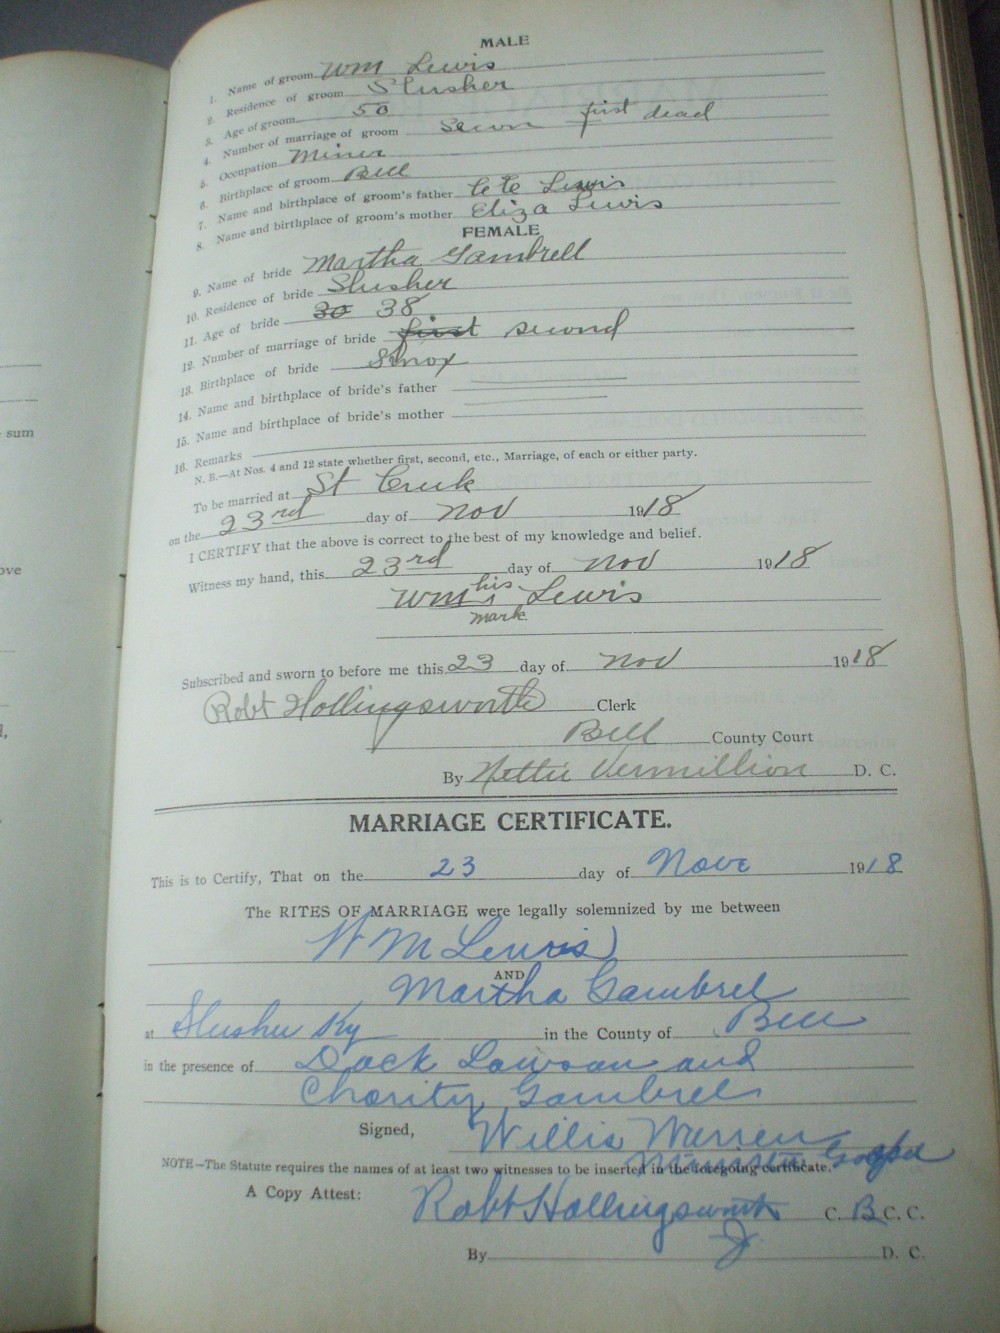 sum
ove
MALE
1. Name of groom Wm Lewis
2. Residence of groom Slusher
3. Age of groom 50
4. Number of marriage of groom first dead
5. Occupation Miner
6. Birthplace of groom Bell
7. Name and birthplace of groom's father Lewis
8. Name and birthplace of groom's mother Eliza Lewis
FEMALE
9. Name of bride Martha Gambrell
10. Residence of bride Slusher
11. Age of bride 30 38
12. Number of marriage of bride first second
13. Birthplace of bride Knox
14. Name and birthplace of bride's father
15. Name and birthplace of bride's mother
16. Remarks
N. B.—At Nos. 4 and 12 state whether first, second, etc., Marriage, of each or either party.
To be married at St Creek
on the 23rd day of Nov 1918
I CERTIFY that the above is correct to the best of my knowledge and belief.
Witness my hand, this 23rd day of Nov 1918
his
Wm Lewis
mark
Subscribed and sworn to before me this 23 day of Nov 1918
Robt Hollingsworth Clerk
Bell County Court
By Nettie Vermillion D. C.
MARRIAGE CERTIFICATE.
This is to Certify, That on the 23 day of Nove 1918
The RITES OF MARRIAGE were legally solemnized by me between
W M Lewis
AND
Martha Gambrel
at Slusher Ky in the County of Bell
in the presence of Dock Lawson and
Charity Gambrel
Signed, Willis Warren
Minister Gospel
NOTE—The Statute requires the names of at least two witnesses to be inserted in the foregoing certificate.
A Copy Attest: Robt Hollingsworth C. B. C. C.
By D. C.